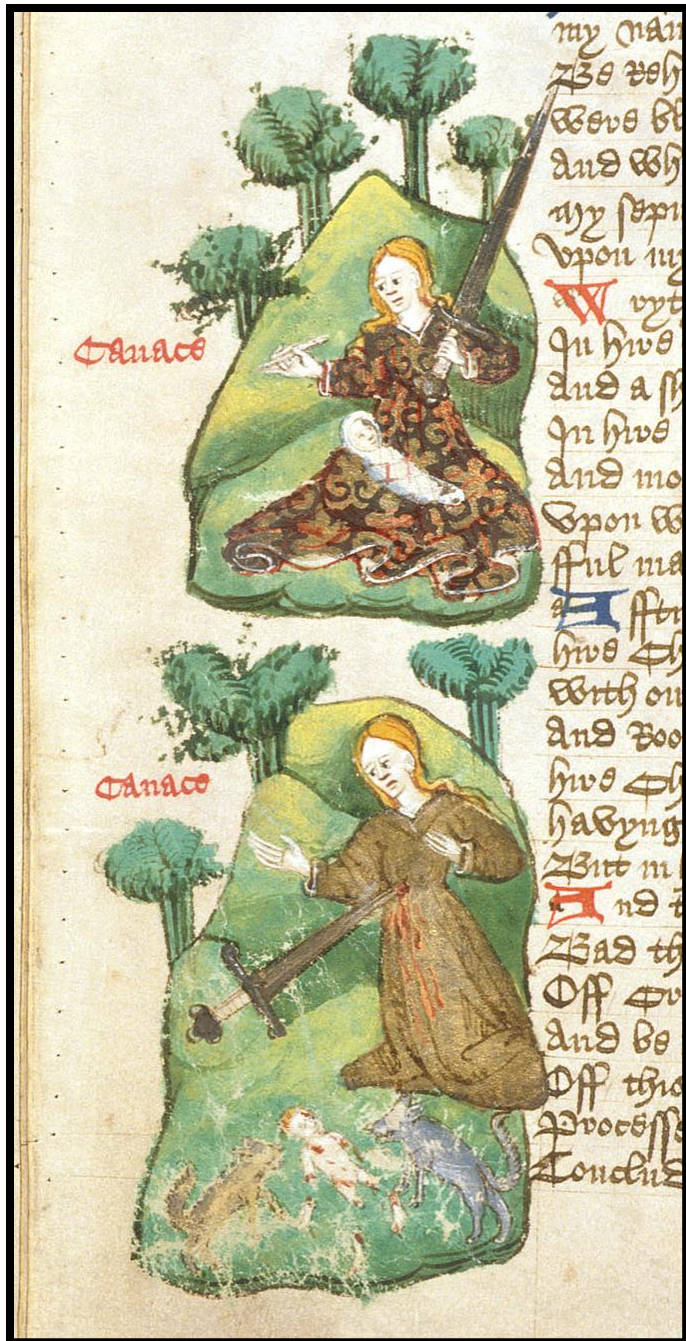 Canace
Canace
my nam
Be reh
were b
And wh
my sepu
vpon my
Wryt
In hire
And a sh
In hire
And mo
Vpon w
fful ma
Afftir
hire Ch
with ou
And Roo
hire Ch
havyng
But in
And t
Bad th
Off Co
And be
Off this
Processe
Conclud